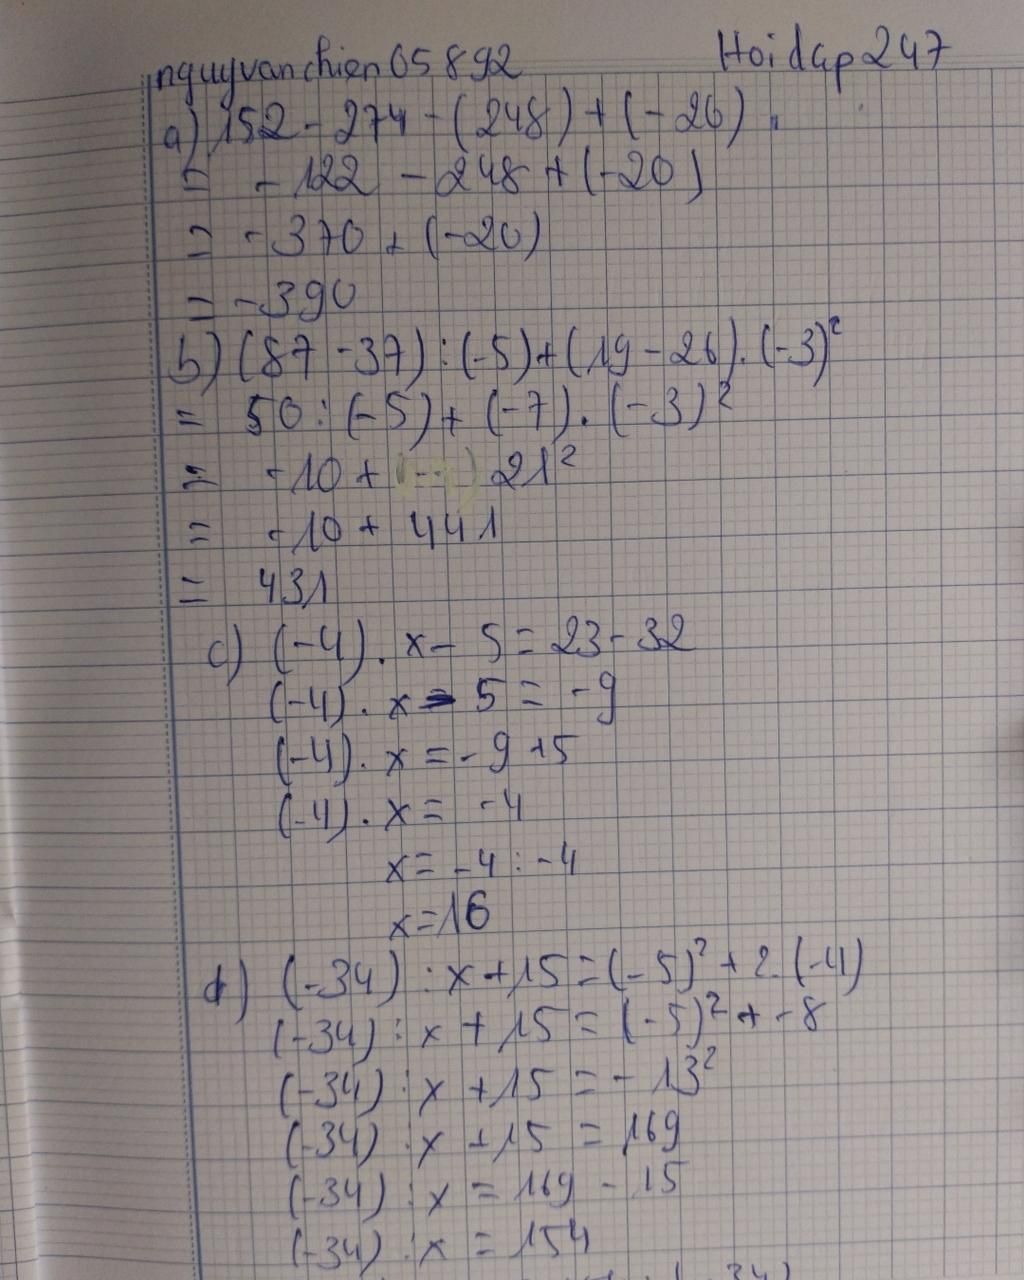 nguyvanchien05892 Hoidap247
a) 152 - 274 - (248) + (-26)
= -122 - 248 + (-20)
= -370 + (-20)
= -390
b) (87 - 37) : (-5) + (19 - 26) . (-3)²
= 50 : (-5) + (-7) . (-3)²
= -10 + 21²
= -10 + 441
= 431
c) (-4) . x - 5 = 23 - 32
(-4) . x - 5 = -9
(-4) . x = -9 + 5
(-4) . x = -4
x = -4 : -4
x = 16
d) (-34) : x + 15 = (-5)² + 2 . (-4)
(-34) : x + 15 = (-5)² + -8
(-34) : x + 15 = -13²
(-34) : x + 15 = 169
(-34) : x = 169 - 15
(-34) : x = 154